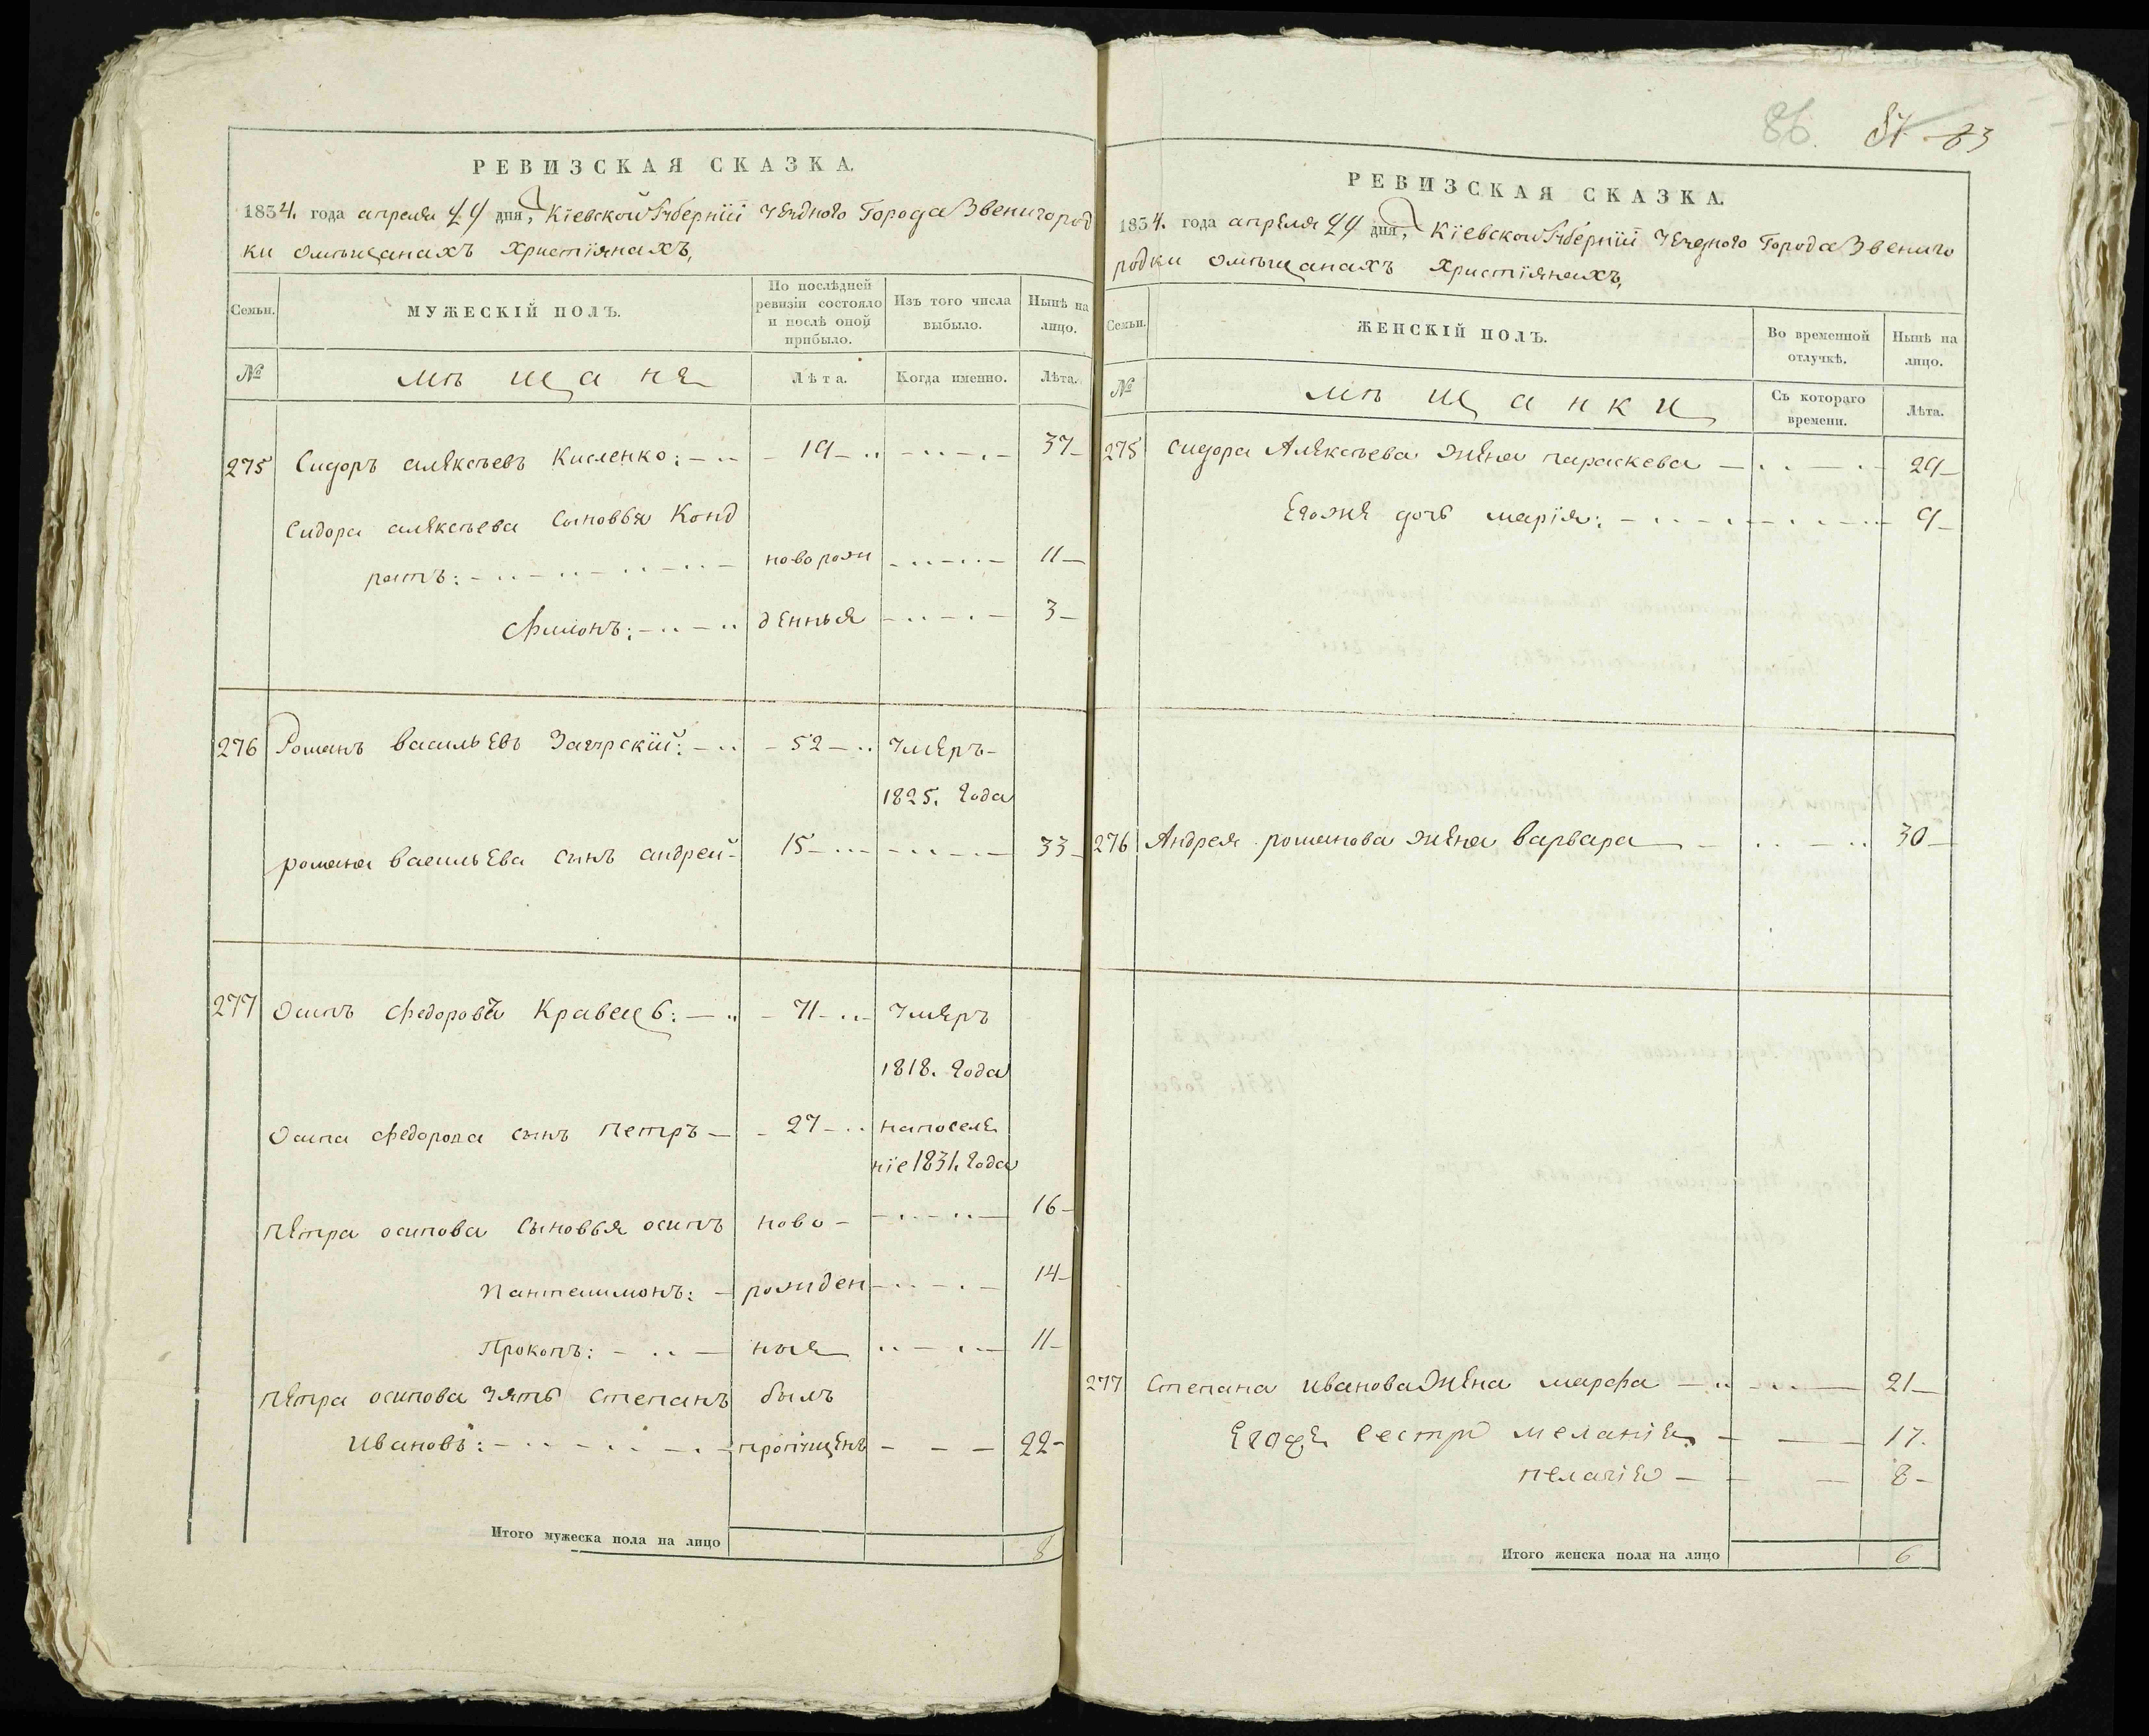 86. 83
РЕВИЗСКАЯ СКАЗКА.
1834. года апреля дня, Кіевской Губерніи Уезднаго Города Звенигород
ки омѣщанахъ христіянахъ,
Семьи. МУЖЕСКІЙ ПОЛЪ. По послѣдней ревизіи состояло и послѣ оной прибыло. Изъ того числа выбыло. Нынѣ на лицо.
№ мѣщане Лѣта. Когда именно. Лѣта.
275 Сидоръ алексѣевъ Кисленко: 19 37
Сидора алексѣева сыновья Конд
ратъ: новорож 11
Филонъ: денныя 3
276 Романъ васильевъ Загурскій: 52 умеръ
1825. Года
романа васильева сынъ андрей 15 33
277 Осипъ Федоровъ Кравецъ: 71 умеръ
1818. Года
Осипа Федорова сынъ петръ 27 напоселе
ніе 1831. Года
петра осипова сыновья осипъ ново 16
Пантелимонъ: рожден 14
Прокопъ: ныя 11
петра осипова зять степанъ былъ
Ивановъ: пропущенъ 22
Итого мужеска пола на лицо 8
РЕВИЗСКАЯ СКАЗКА.
1834. года апреля дня, Кіевской Губерніи Уезднаго Города Звениго
родки омѣщанахъ христіянахъ,
Семьи. ЖЕНСКІЙ ПОЛЪ. Во временной отлучкѣ. Нынѣ на лицо.
№ мѣщанки Съ котораго времени. Лѣта.
275 Сидора Алексѣева жена параскева 29
Егоже дочь марія: 9
276 Андрея романова жена варвара 30
277 Степана иванова жена марфа 21
Егоже сестры меланіе 17.
пелагіе 8
Итого женска пола на лицо 6